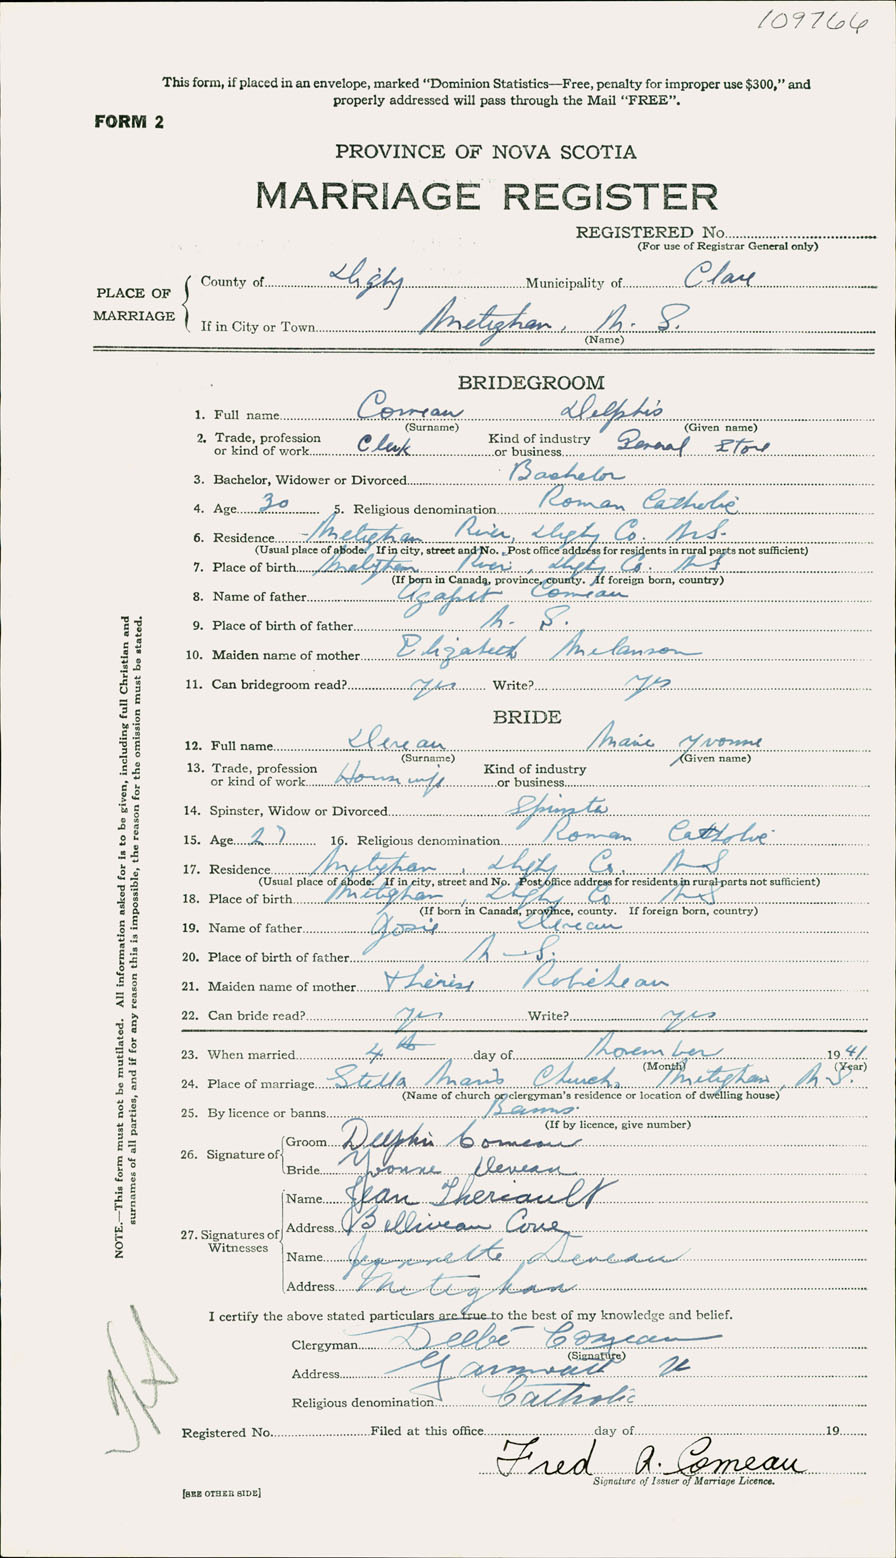 109766
This form, if placed in an envelope, marked “Dominion Statistics—Free, penalty for improper use $300,” and
properly addressed will pass through the Mail “FREE”.
FORM 2
PROVINCE OF NOVA SCOTIA
MARRIAGE REGISTER
REGISTERED No.
(For use of Registrar General only)
PLACE OF MARRIAGE
County of Digby Municipality of Clare
If in City or Town Meteghan, N. S.
(Name)
BRIDEGROOM
1. Full name Comeau Delphis
(Surname) (Given name)
2. Trade, profession or kind of work Clerk Kind of industry or business General Store
3. Bachelor, Widower or Divorced Bachelor
4. Age 30 5. Religious denomination Roman Catholic
6. Residence Meteghan River, Digby Co. N.S.
(Usual place of abode. If in city, street and No. Post office address for residents in rural parts not sufficient)
7. Place of birth Meteghan River, Digby Co. N S
(If born in Canada, province, county. If foreign born, country)
8. Name of father Agapit Comeau
9. Place of birth of father N. S.
10. Maiden name of mother Elizabeth Melanson
11. Can bridegroom read? yes Write? yes
BRIDE
12. Full name Deveau Marie Yvonne
(Surname) (Given name)
13. Trade, profession or kind of work Housewife Kind of industry or business
14. Spinster, Widow or Divorced Spinster
15. Age 27 16. Religious denomination Roman Catholic
17. Residence Meteghan, Digby Co. N S
(Usual place of abode. If in city, street and No. Post office address for residents in rural parts not sufficient)
18. Place of birth Meteghan, Digby Co N S
(If born in Canada, province, county. If foreign born, country)
19. Name of father Josie Deveau
20. Place of birth of father N. S.
21. Maiden name of mother Thérèse Robicheau
22. Can bride read? yes Write? yes
23. When married 4th day of November 1941
(Month) (Year)
24. Place of marriage Stella Maris Church, Meteghan, N.S.
(Name of church or clergyman's residence or location of dwelling house)
25. By licence or banns Banns.
(If by licence, give number)
26. Signature of
Groom Delphis Comeau
Bride Yvonne Deveau
27. Signatures of Witnesses
Name Jean Theriault
Address Belliveau Cove
Name Jeannette Deveau
Address Meteghan
I certify the above stated particulars are true to the best of my knowledge and belief.
Clergyman Comeau
(Signature)
Address
Religious denomination Catholic
Registered No. Filed at this office day of 19
Fred A. Comeau
Signature of Issuer of Marriage Licence.
[SEE OTHER SIDE]
NOTE.—This form must not be mutilated. All information asked for is to be given, including full Christian and
surnames of all parties, and if for any reason this is impossible, the reason for the omission must be stated.